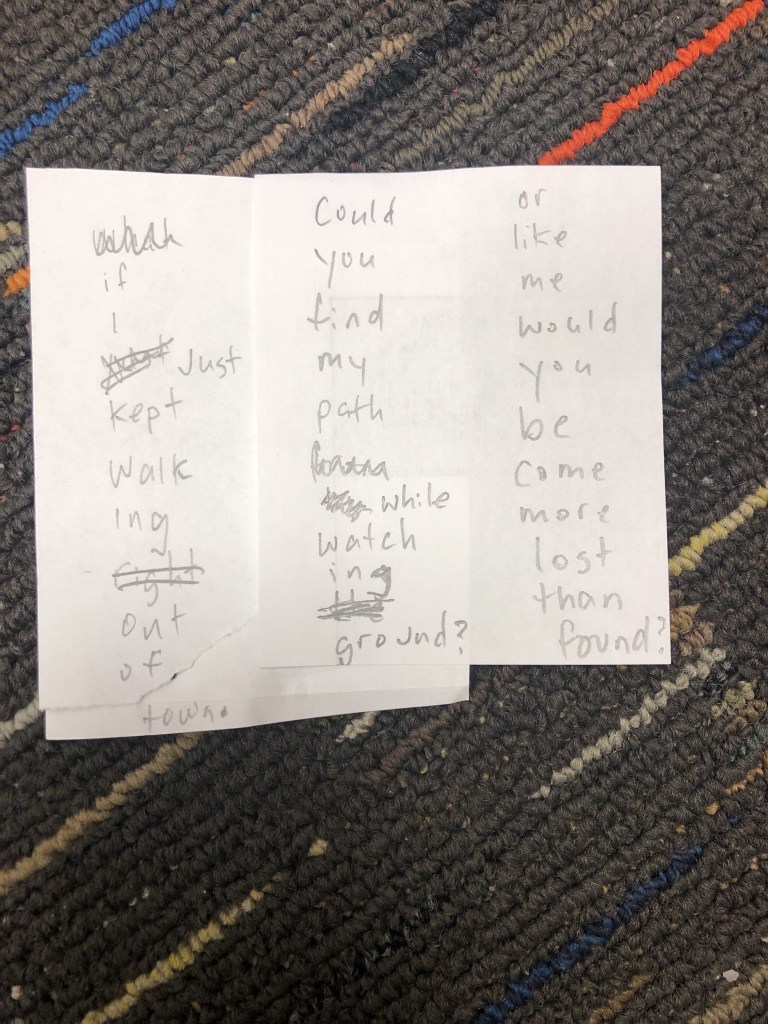 if
I
Just
kept
walk
ing
right
out
of
town.
Could
you
find
my
path
while
watch
ing
ground?
or
like
me
would
you
be
come
more
lost
than
found?